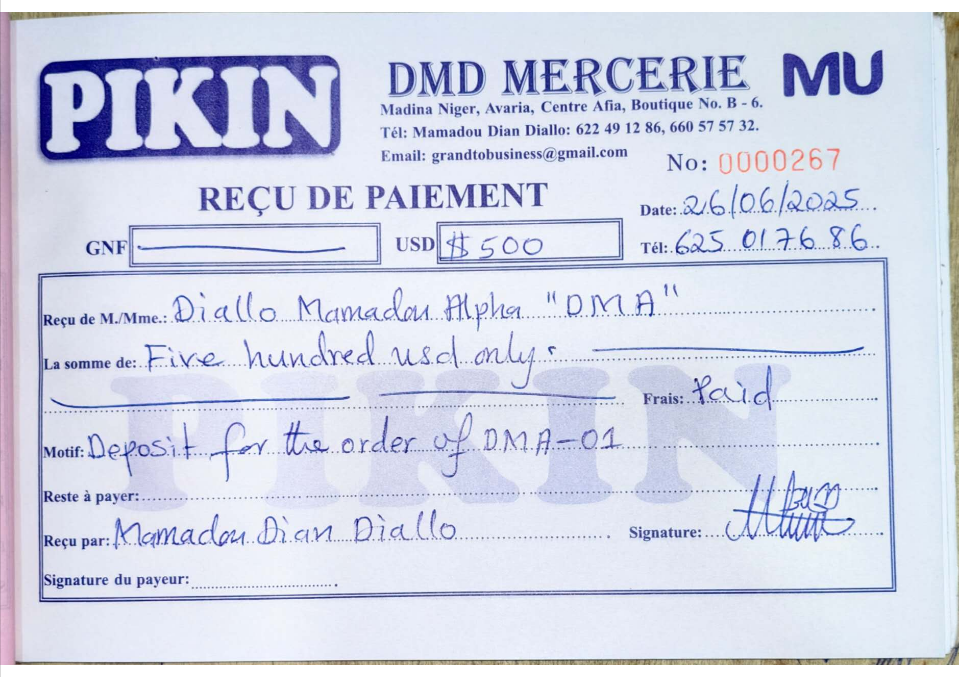 PIKIN
DMD MERCERIE MU
Madina Niger, Avaria, Centre Afia, Boutique No. B - 6.
Tél: Mamadou Dian Diallo: 622 49 12 86, 660 57 57 32.
Email: grandtobusiness@gmail.com
No: 0000267
REÇU DE PAIEMENT
Date: 26/06/2025
GNF USD $ 500 Tél: 625 01 76 86
Reçu de M./Mme.: Diallo Mamadou Alpha "DMA"
La somme de: Five hundred usd only.
Frais: Paid
Motif: Deposit for the order of DMA-01
Reste à payer:
Reçu par: Mamadou Dian Diallo Signature:
Signature du payeur:
PIKIN